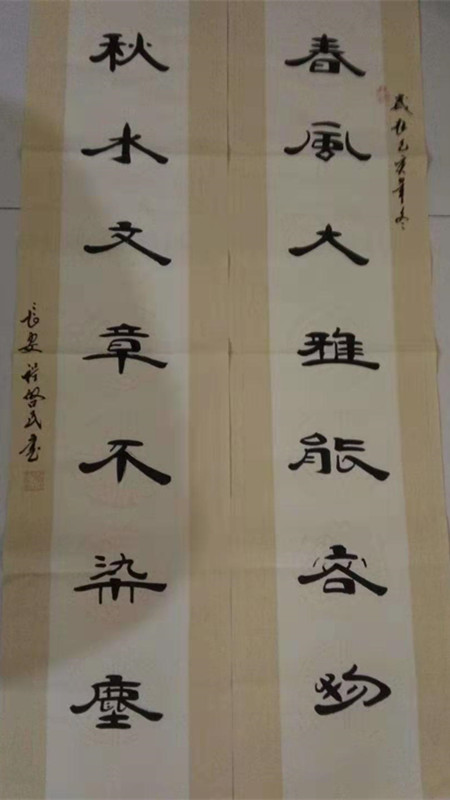 歲在己亥年冬
春風大雅能容物
秋水文章不染塵
長安程啓民書